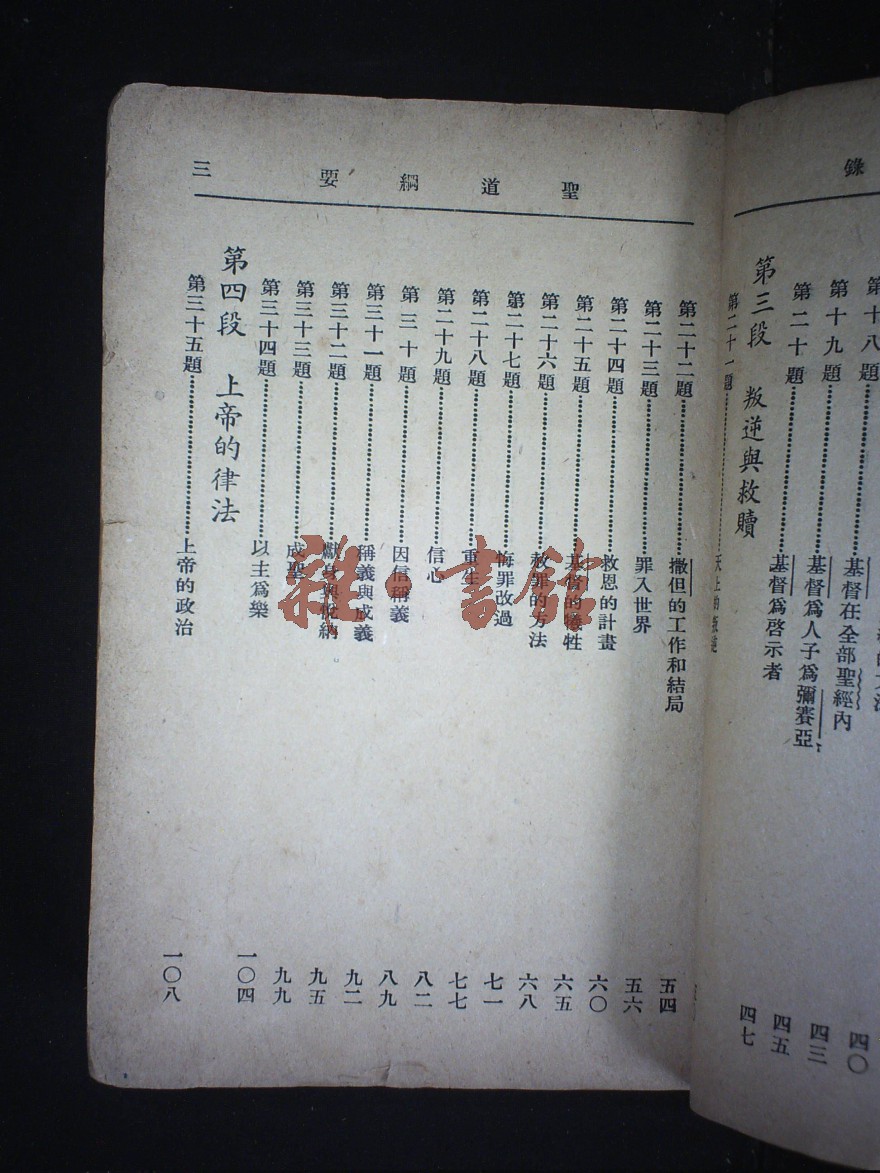 錄
第十八題
第十九題……基督在全部聖經內 四〇
第二十題……基督爲人子爲彌賽亞 四三
基督爲啓示者 四五
第三段 叛逆與救贖
第二十一題……天上的叛逆 四七
聖道綱要 三
第二十二題……撒但的工作和結局 五四
第二十三題……罪入世界 五六
第二十四題……救恩的計畫 六〇
第二十五題……基督的犧牲 六五
第二十六題……赦罪的方法 六八
第二十七題……悔罪改過 七一
第二十八題……重生 七七
第二十九題……信心 八二
第三十題……因信稱義 八九
第三十一題……稱義與成義 九二
第三十二題……獻身與悅納 九五
第三十三題……成聖 九九
第三十四題……以主爲樂 一〇四
第四段 上帝的律法
第三十五題……上帝的政治 一〇八
雜·書館